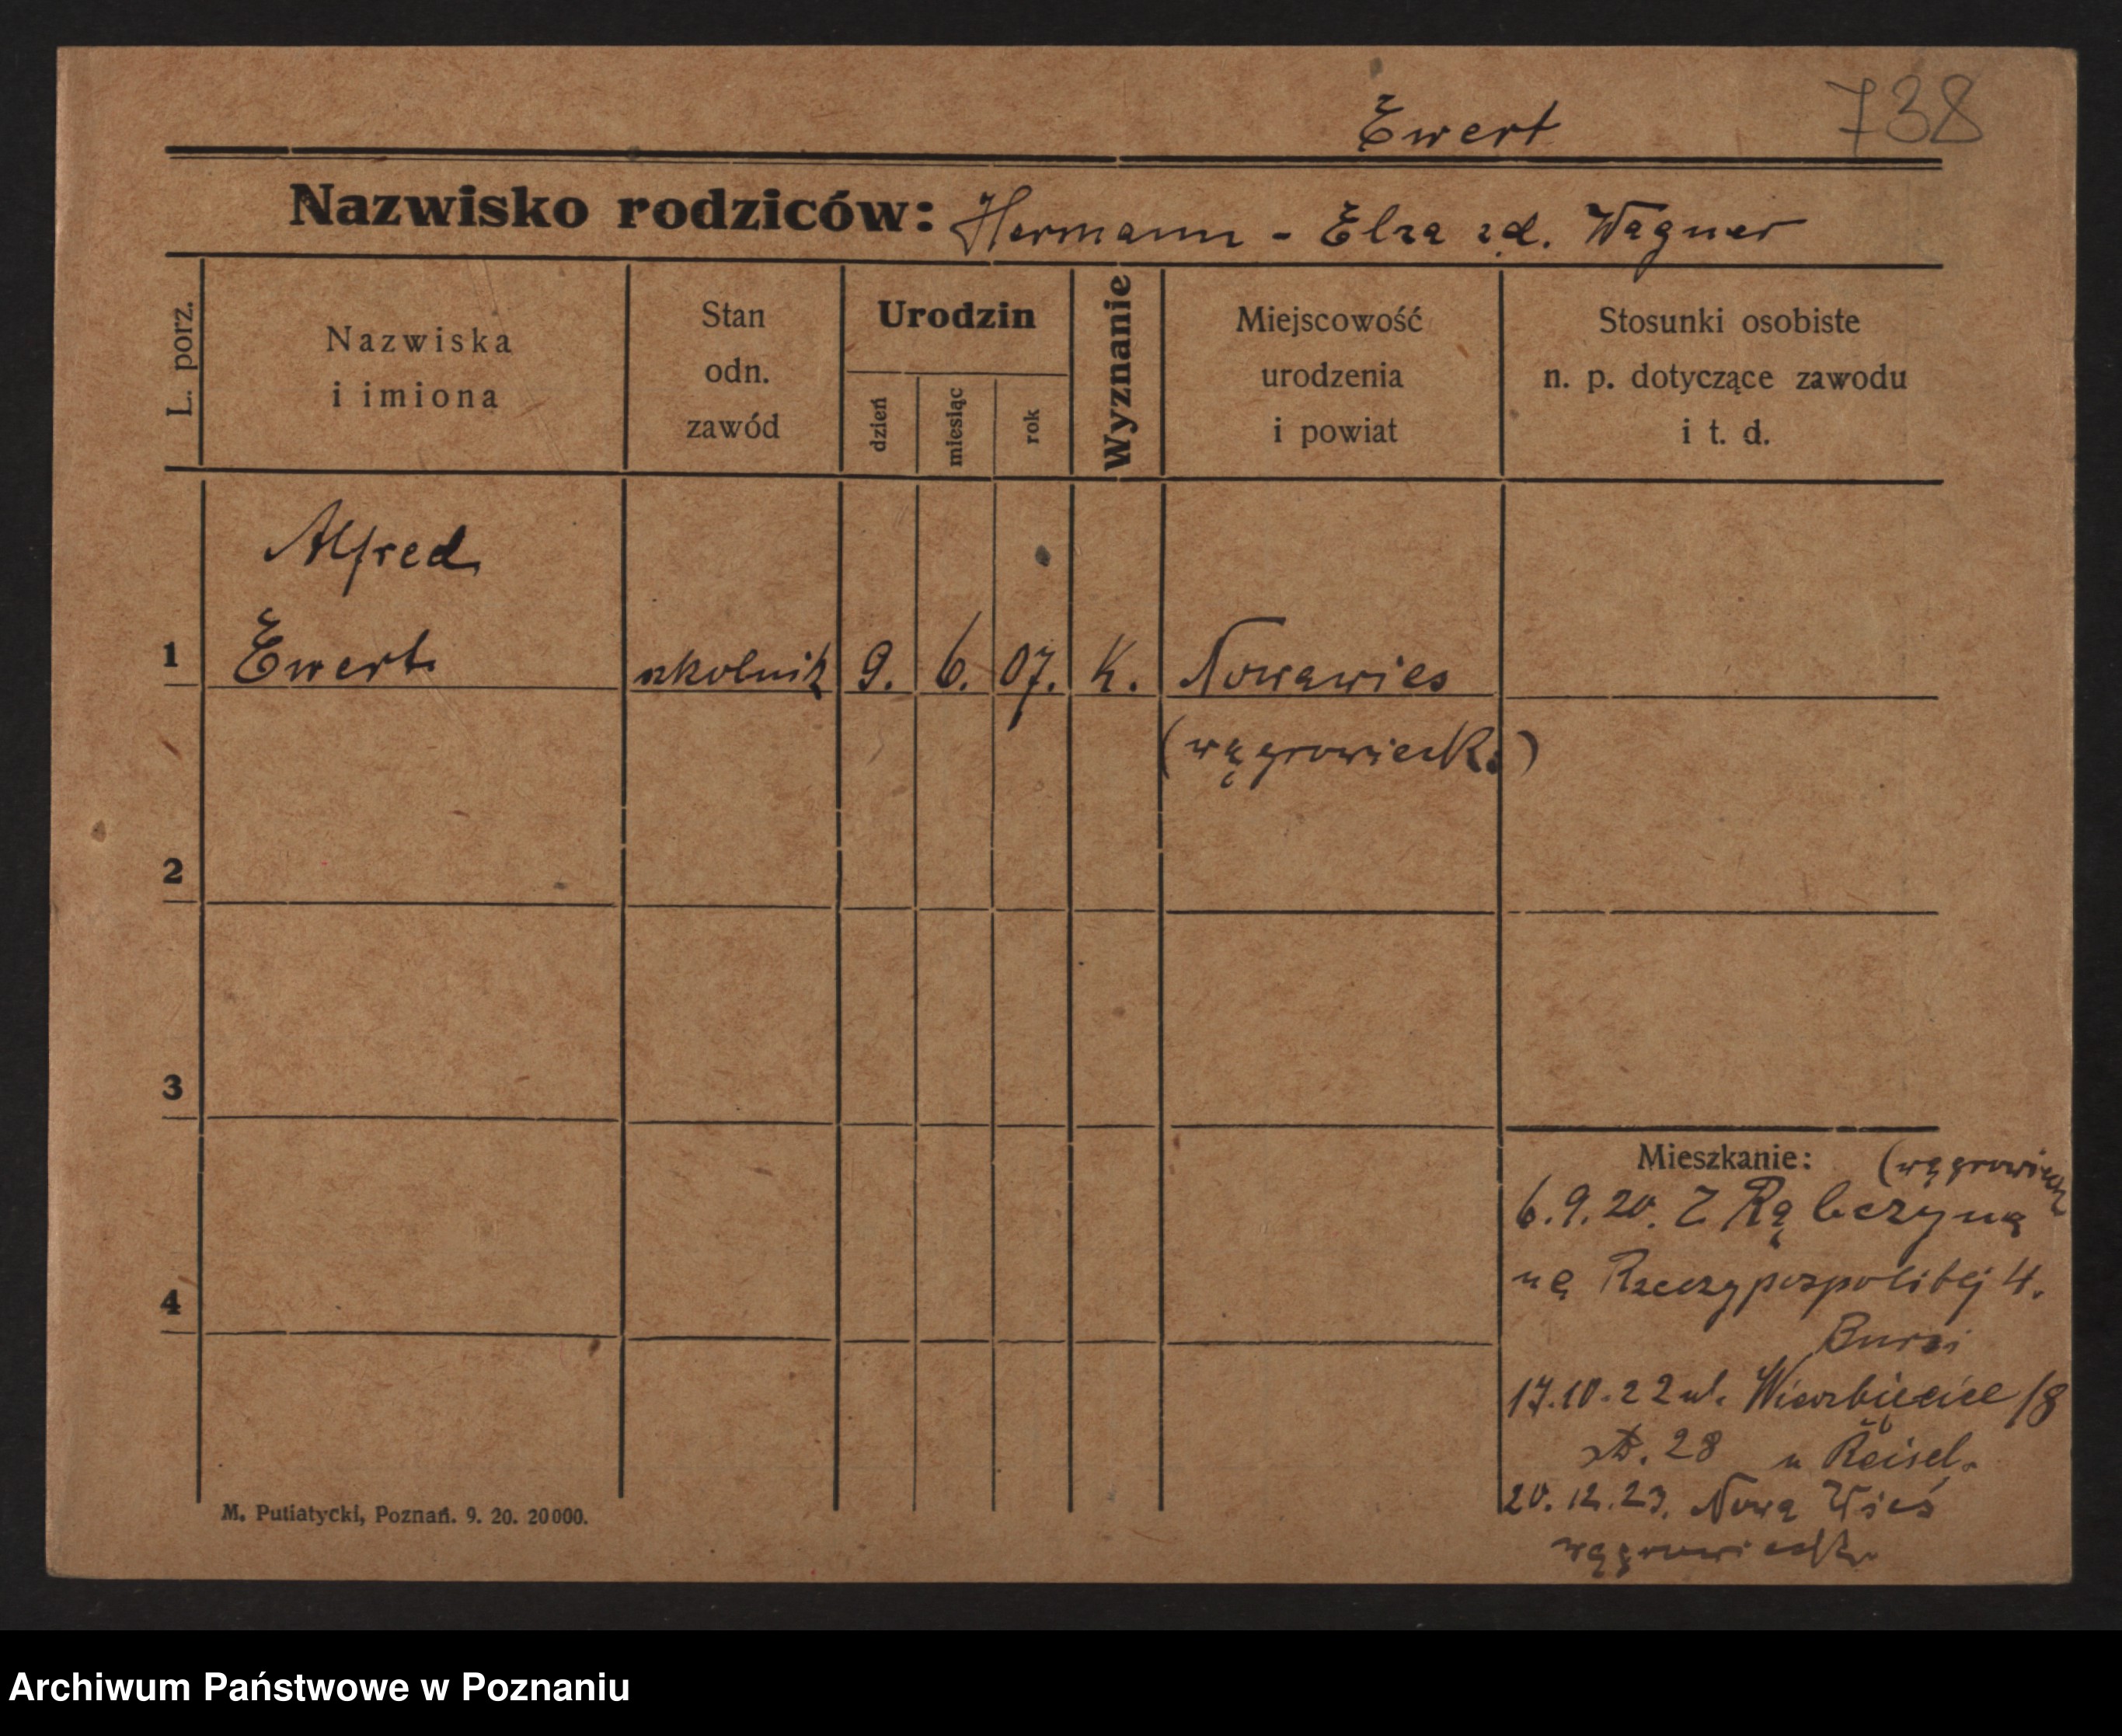 738
Ewert
Nazwisko rodziców: Hermann - Elza zd. Wagner
L. porz.
Nazwiska
i imiona
Stan
odn.
zawód
Urodzin
dzień
miesiąc
rok
Wyznanie
Miejscowość
urodzenia
i powiat
Stosunki osobiste
n. p. dotyczące zawodu
i t. d.
Alfred
1 Ewert szkolnik 9. 6. 07. K. Nowawies
(wągrowieck.)
2
3
4
Mieszkanie: (wągrowieck
6.9.20. Z Rąbczyna
na Rzeczypospolitej 4.
17.10.22 ul. Wierzbięcice 18
28 u Reisel.
20.12.23. Nowa Wieś
wągrowieck.
M. Putiatycki, Poznań. 9. 20. 20000.
Archiwum Państwowe w Poznaniu